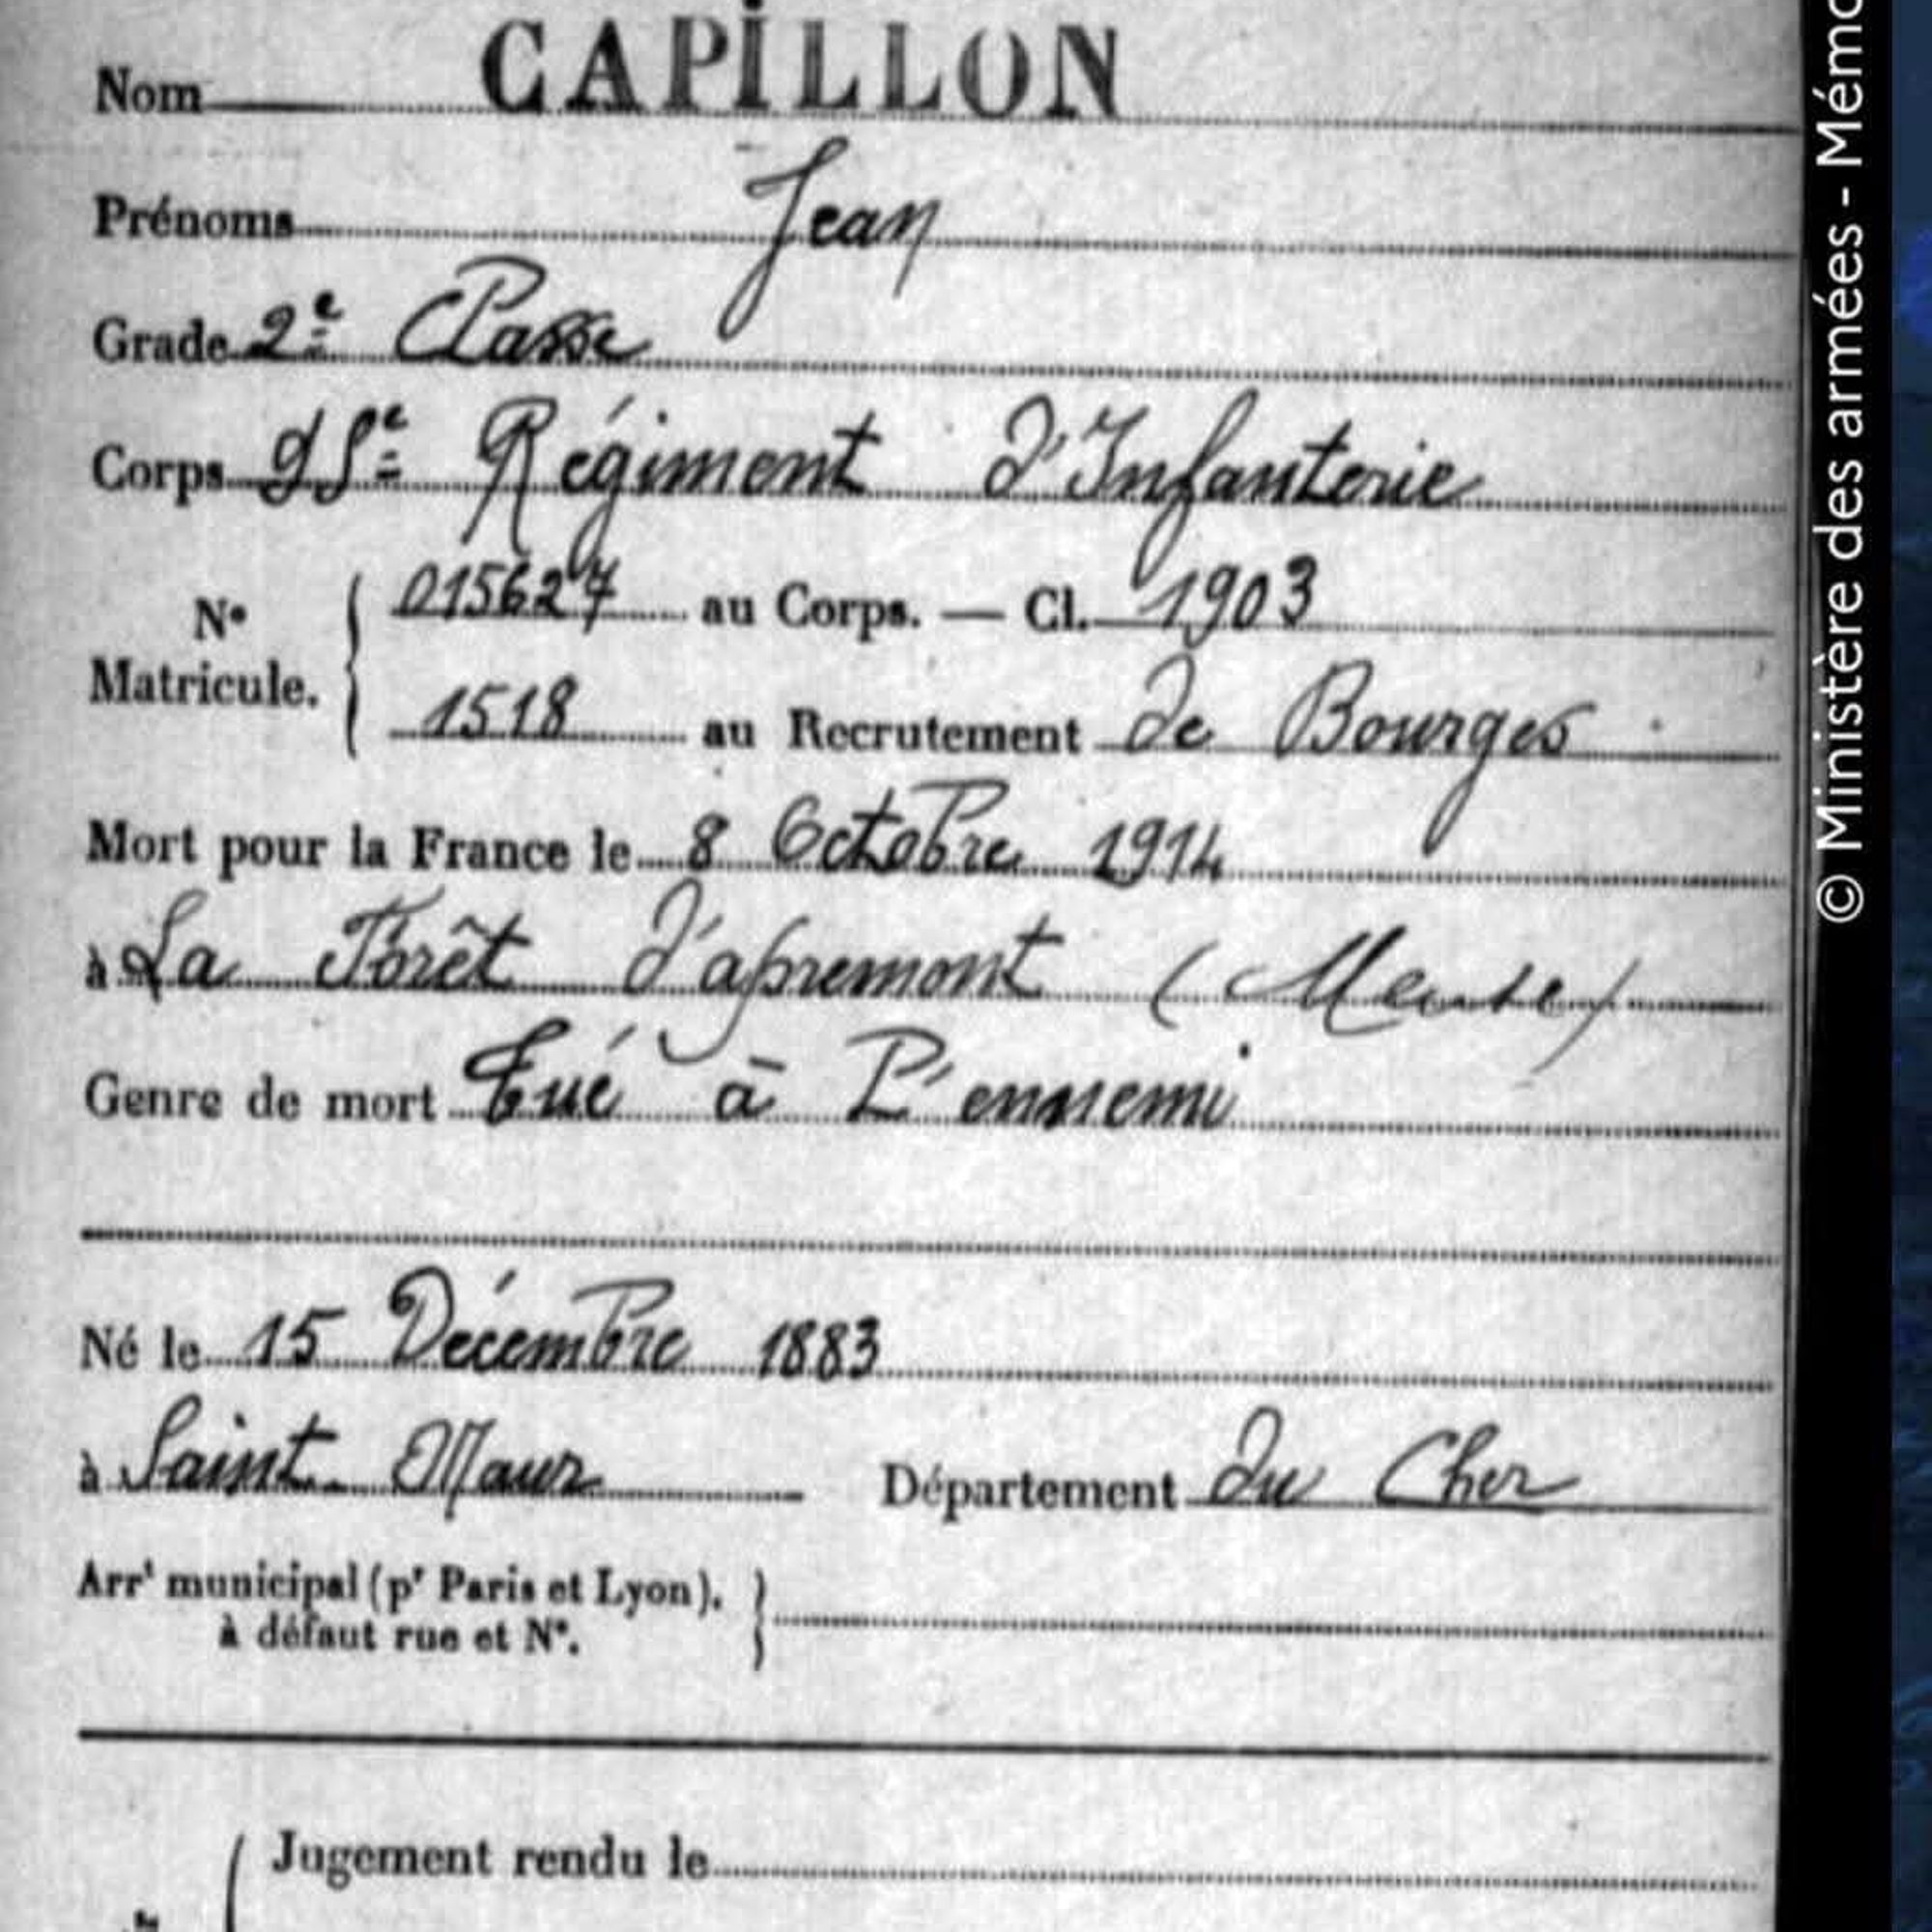 Nom CAPILLON
Prénoms Jean
Grade 2e Classe
Corps 95e Régiment d'Infanterie
No Matricule. { 015627 au Corps. — Cl. 1903
1518 au Recrutement de Bourges
Mort pour la France le 8 Octobre 1914
à La Forêt d'apremont (Meuse)
Genre de mort Tué à l'ennemi
Né le 15 Décembre 1883
à Saint-Maur Département du Cher
Arrt municipal (pr Paris et Lyon), }
à défaut rue et No.
Jugement rendu le
© Ministère des armées - Mémo